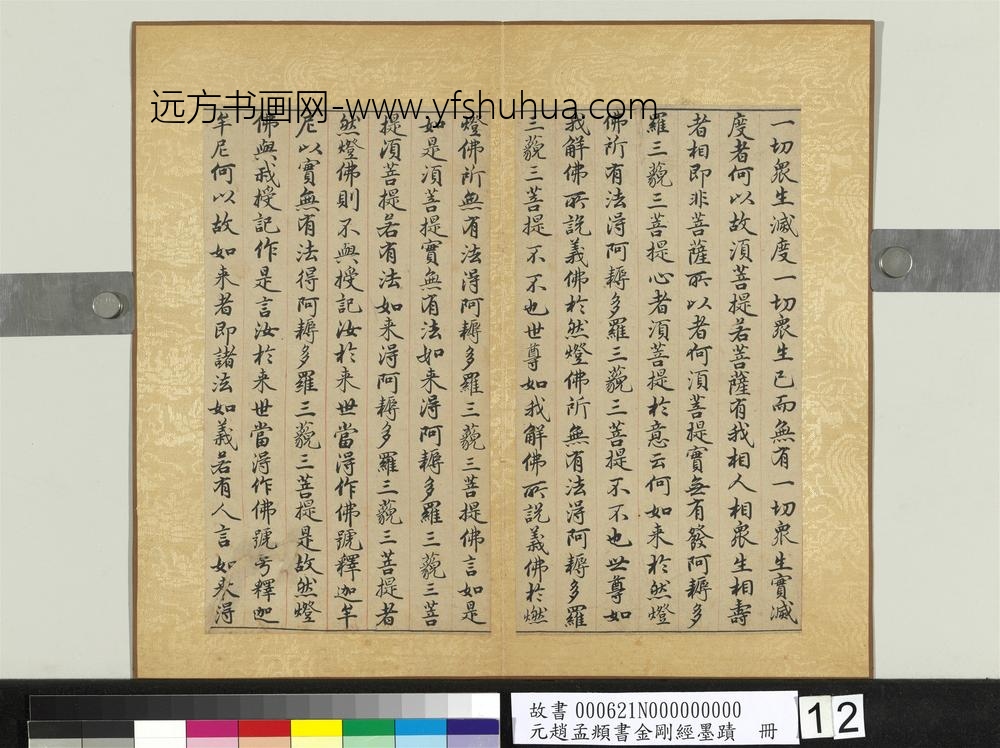 远方书画网-www.yfshuhua.com
一切衆生滅度一切衆生已而無有一切衆生實滅
度者何以故須菩提若菩薩有我相人相衆生相壽
者相即非菩薩所以者何須菩提實無有發阿耨多
羅三藐三菩提心者須菩提於意云何如来於然燈
佛所有法得阿耨多羅三藐三菩提不不也世尊如
我解佛所說義佛於然燈佛所無有法得阿耨多羅
三藐三菩提不不也世尊如我解佛所說義佛於燃
燈佛所無有法得阿耨多羅三藐三菩提佛言如是
如是須菩提實無有法如来得阿耨多羅三藐三菩
提須菩提若有法如来得阿耨多羅三藐三菩提者
然燈佛則不與授記汝於来世當得作佛號釋迦牟
尼以實無有法得阿耨多羅三藐三菩提是故然燈
佛與我授記作是言汝於来世當得作佛號号釋迦
牟尼何以故如来者即諸法如義若有人言如来得
故書 000621N000000000
元趙孟頫書金剛經墨蹟 冊
12